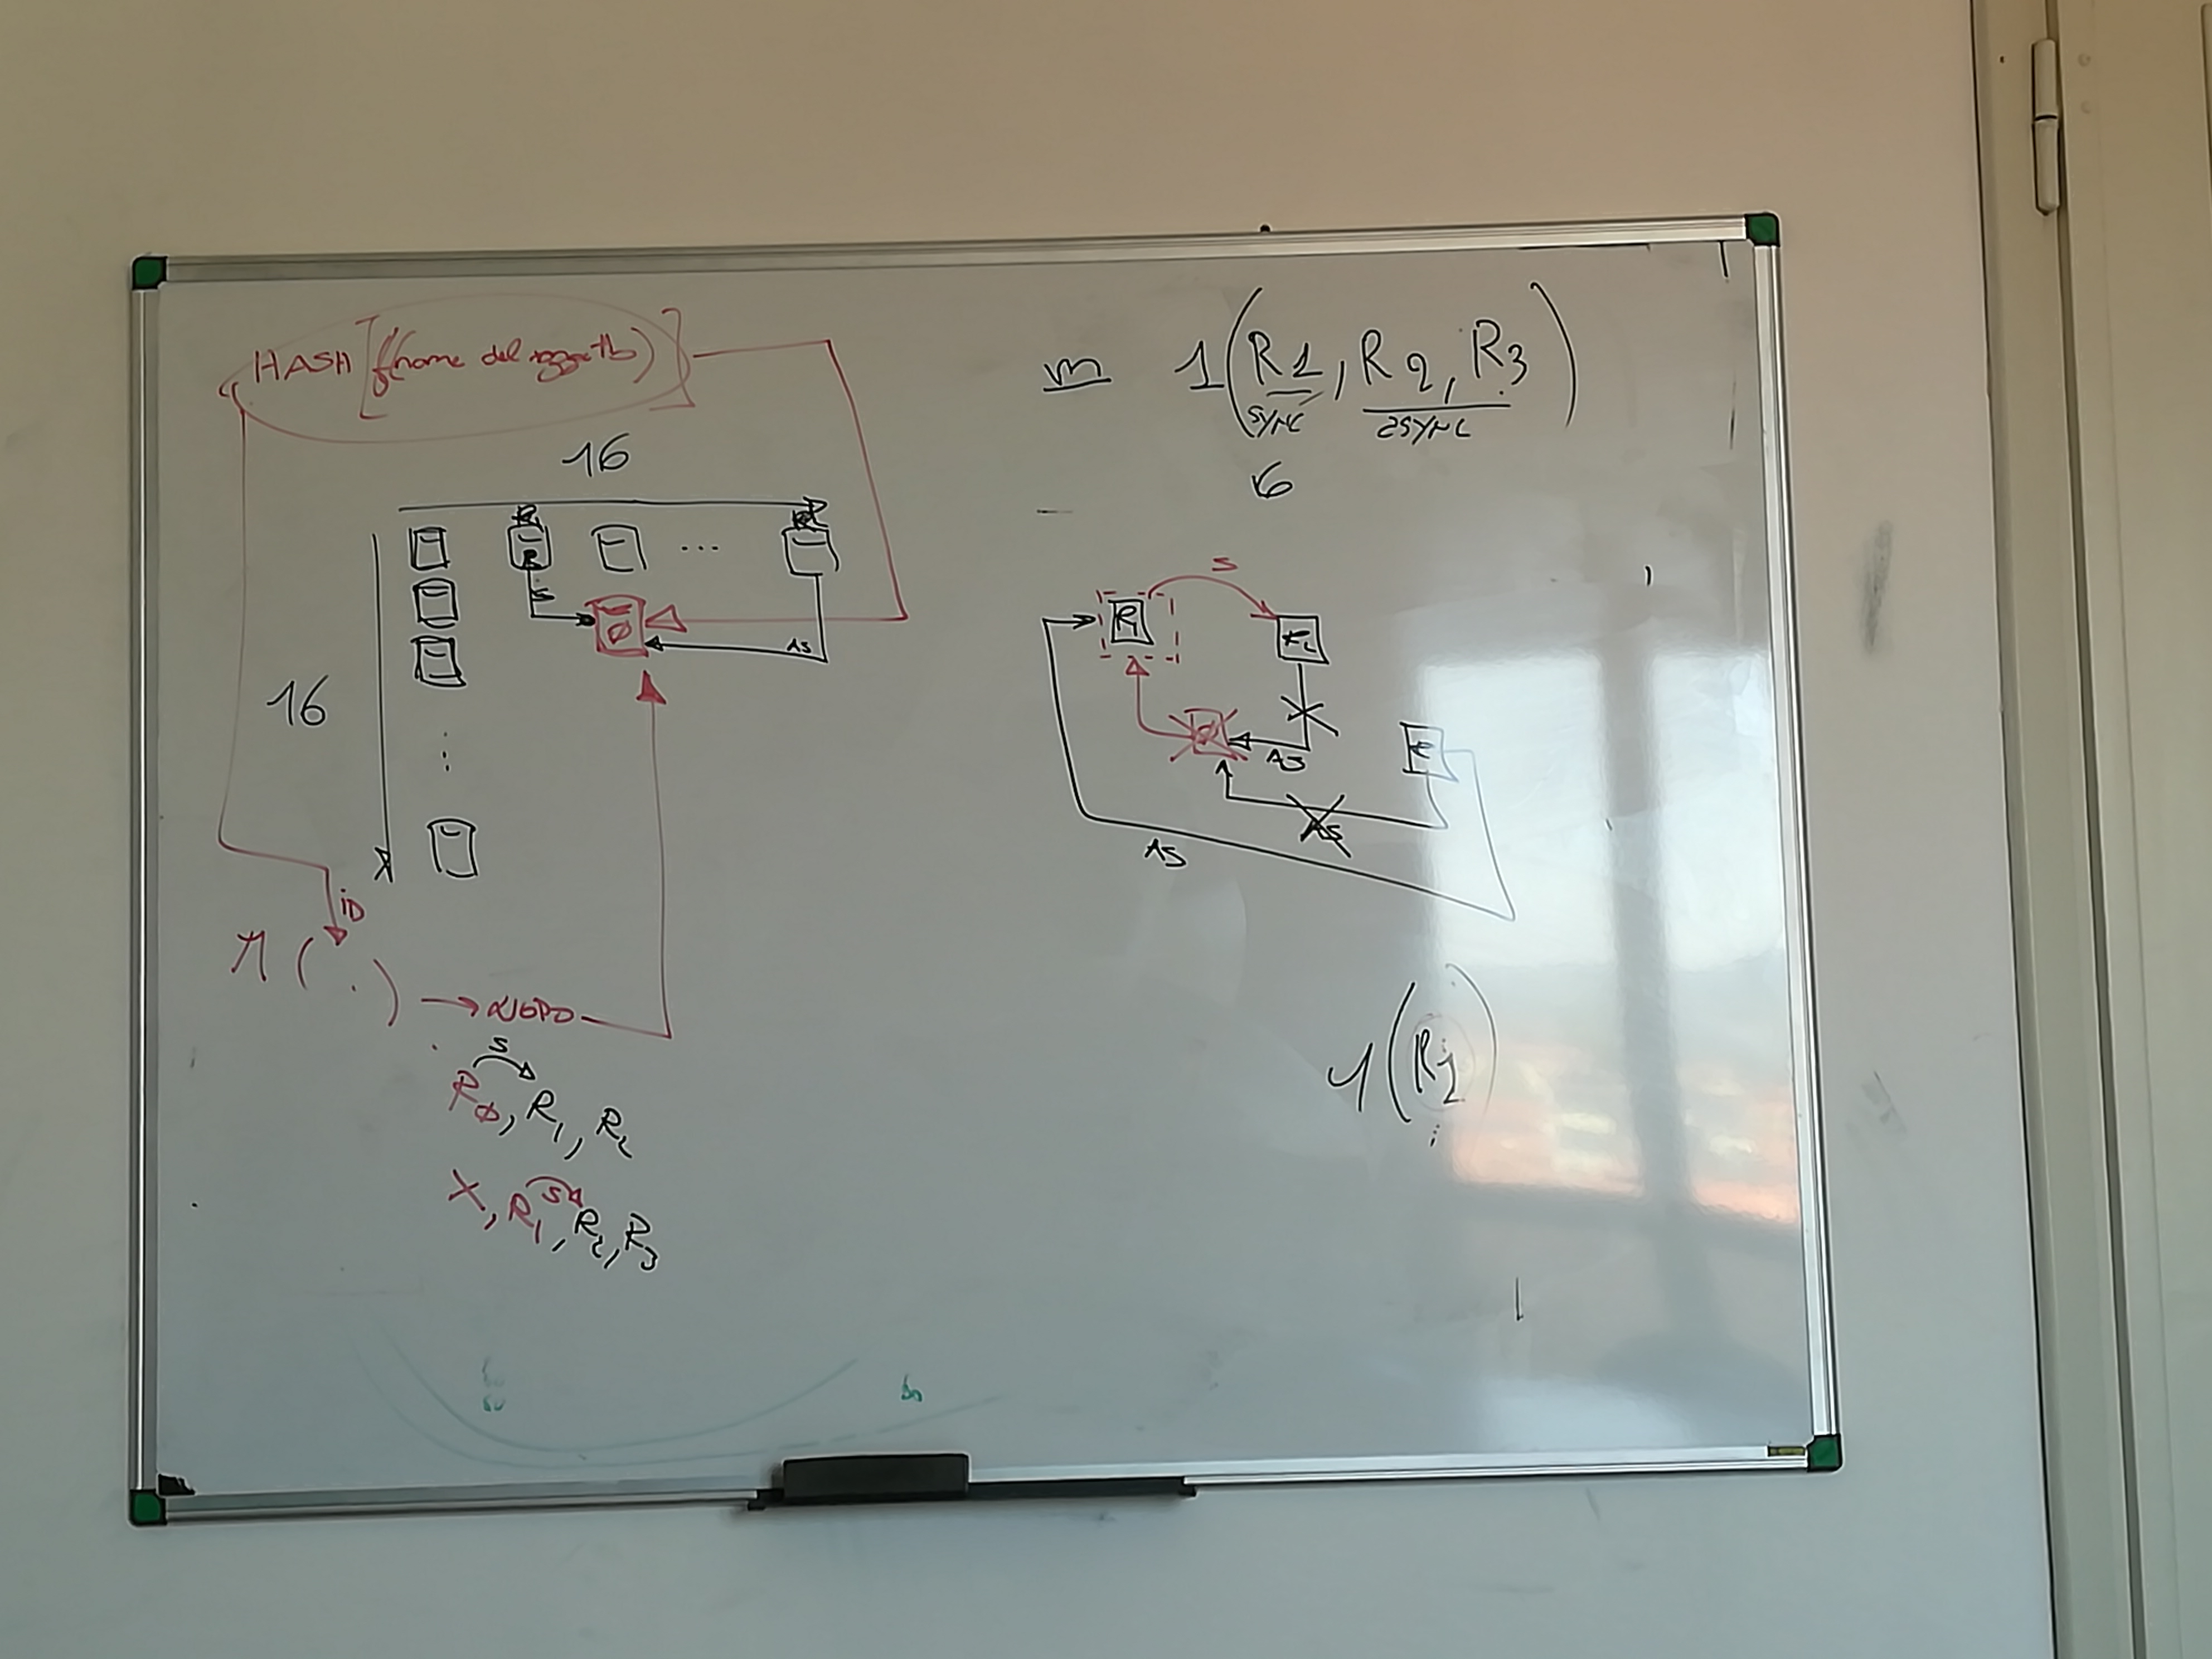 HASH [f(nome del oggetto)]
16
16
R1
S
Ø
AS
iD
π ( . ) → NODO
S
RØ, R1, R2
S
X, R1, R2, R3
m 1(R1, R2, R3)
SYNC ASYNC
16
S
R1
R2
Ø
AS
AS
AS
1(R1)